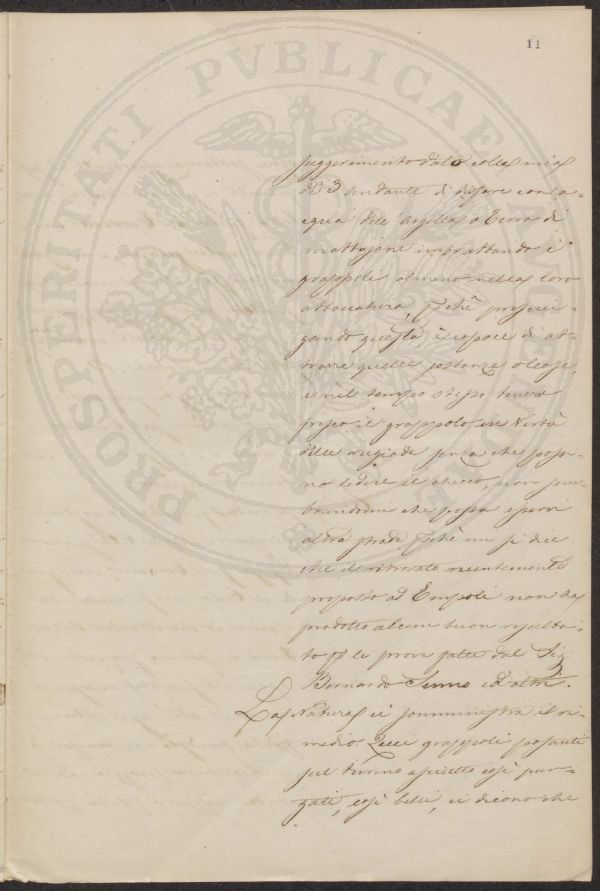 11
PROSPERITATI PVBLICAE
suggerimento dal
di 3 andante di disfare con la-
cqua dell'argilla o terra di
mattajone imbrattando i
grappoli almeno nella loro
attaccatura, pchè prosciu-
gando questa è capace di at-
trarre quelle sostanze oleose,
e nel tempo stesso tenere
fresco il grappolo in Virtù
delle rugiade senza che possi-
no ledire il chicco, non sem-
brandomi che possa esservi
altra strada pchè mi si dice
che il ritrovato recentemente
proposto ad Empoli non ha
prodotto alcun buon resulta-
to p le prove fatte dal Sig.
Bernardo ed altri.
La Natura ci somministra il ri-
medio. Quei grappoli posanti
sul terreno asciutto così pur-
gati, così belli, ci dicono che